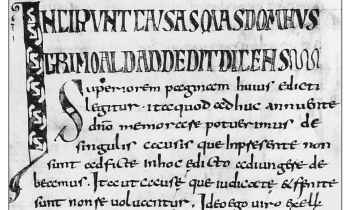 INCIPIUNT CAUSAS QUAS DOMNUS
GRIMOALD ADDEDIT DICENS
Superiorem paginam huius edicti
legitur · ita quod adhuc annuente
dno memorare potuerimus de
singulis causis que inpresente non
sunt adficte inhoc edicto adiungere de
beamus · Ita ut causę que iudicate & finite
sunt non reuoluentur · Ideo ego uiro